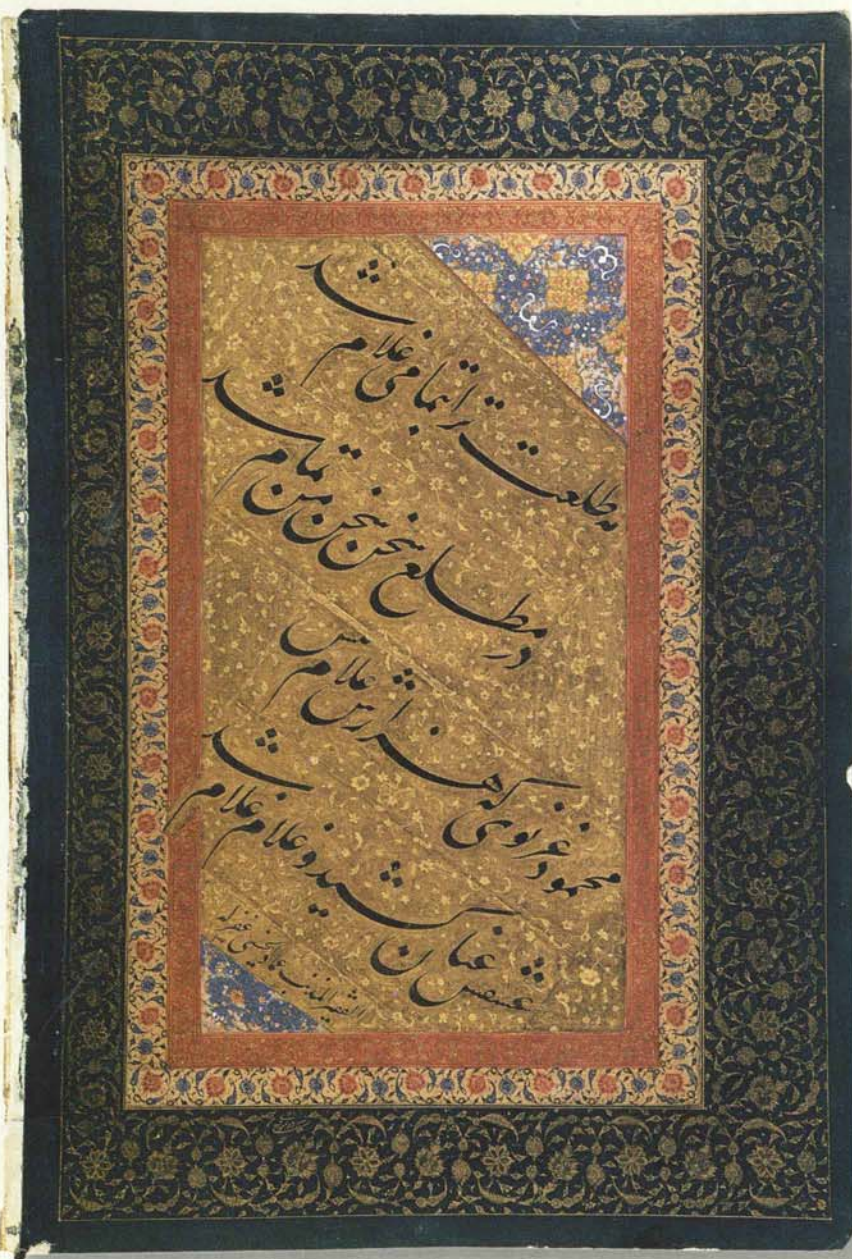 مه طلعت ترا بتمامی غلام شد
در مطلع سخن سخن من تمام شد
محمود غزنوی که هزارش غلام
عشقش عنان کشید و غلام غلام شد
الفقیر المذنب عماد الحسنی غفرله